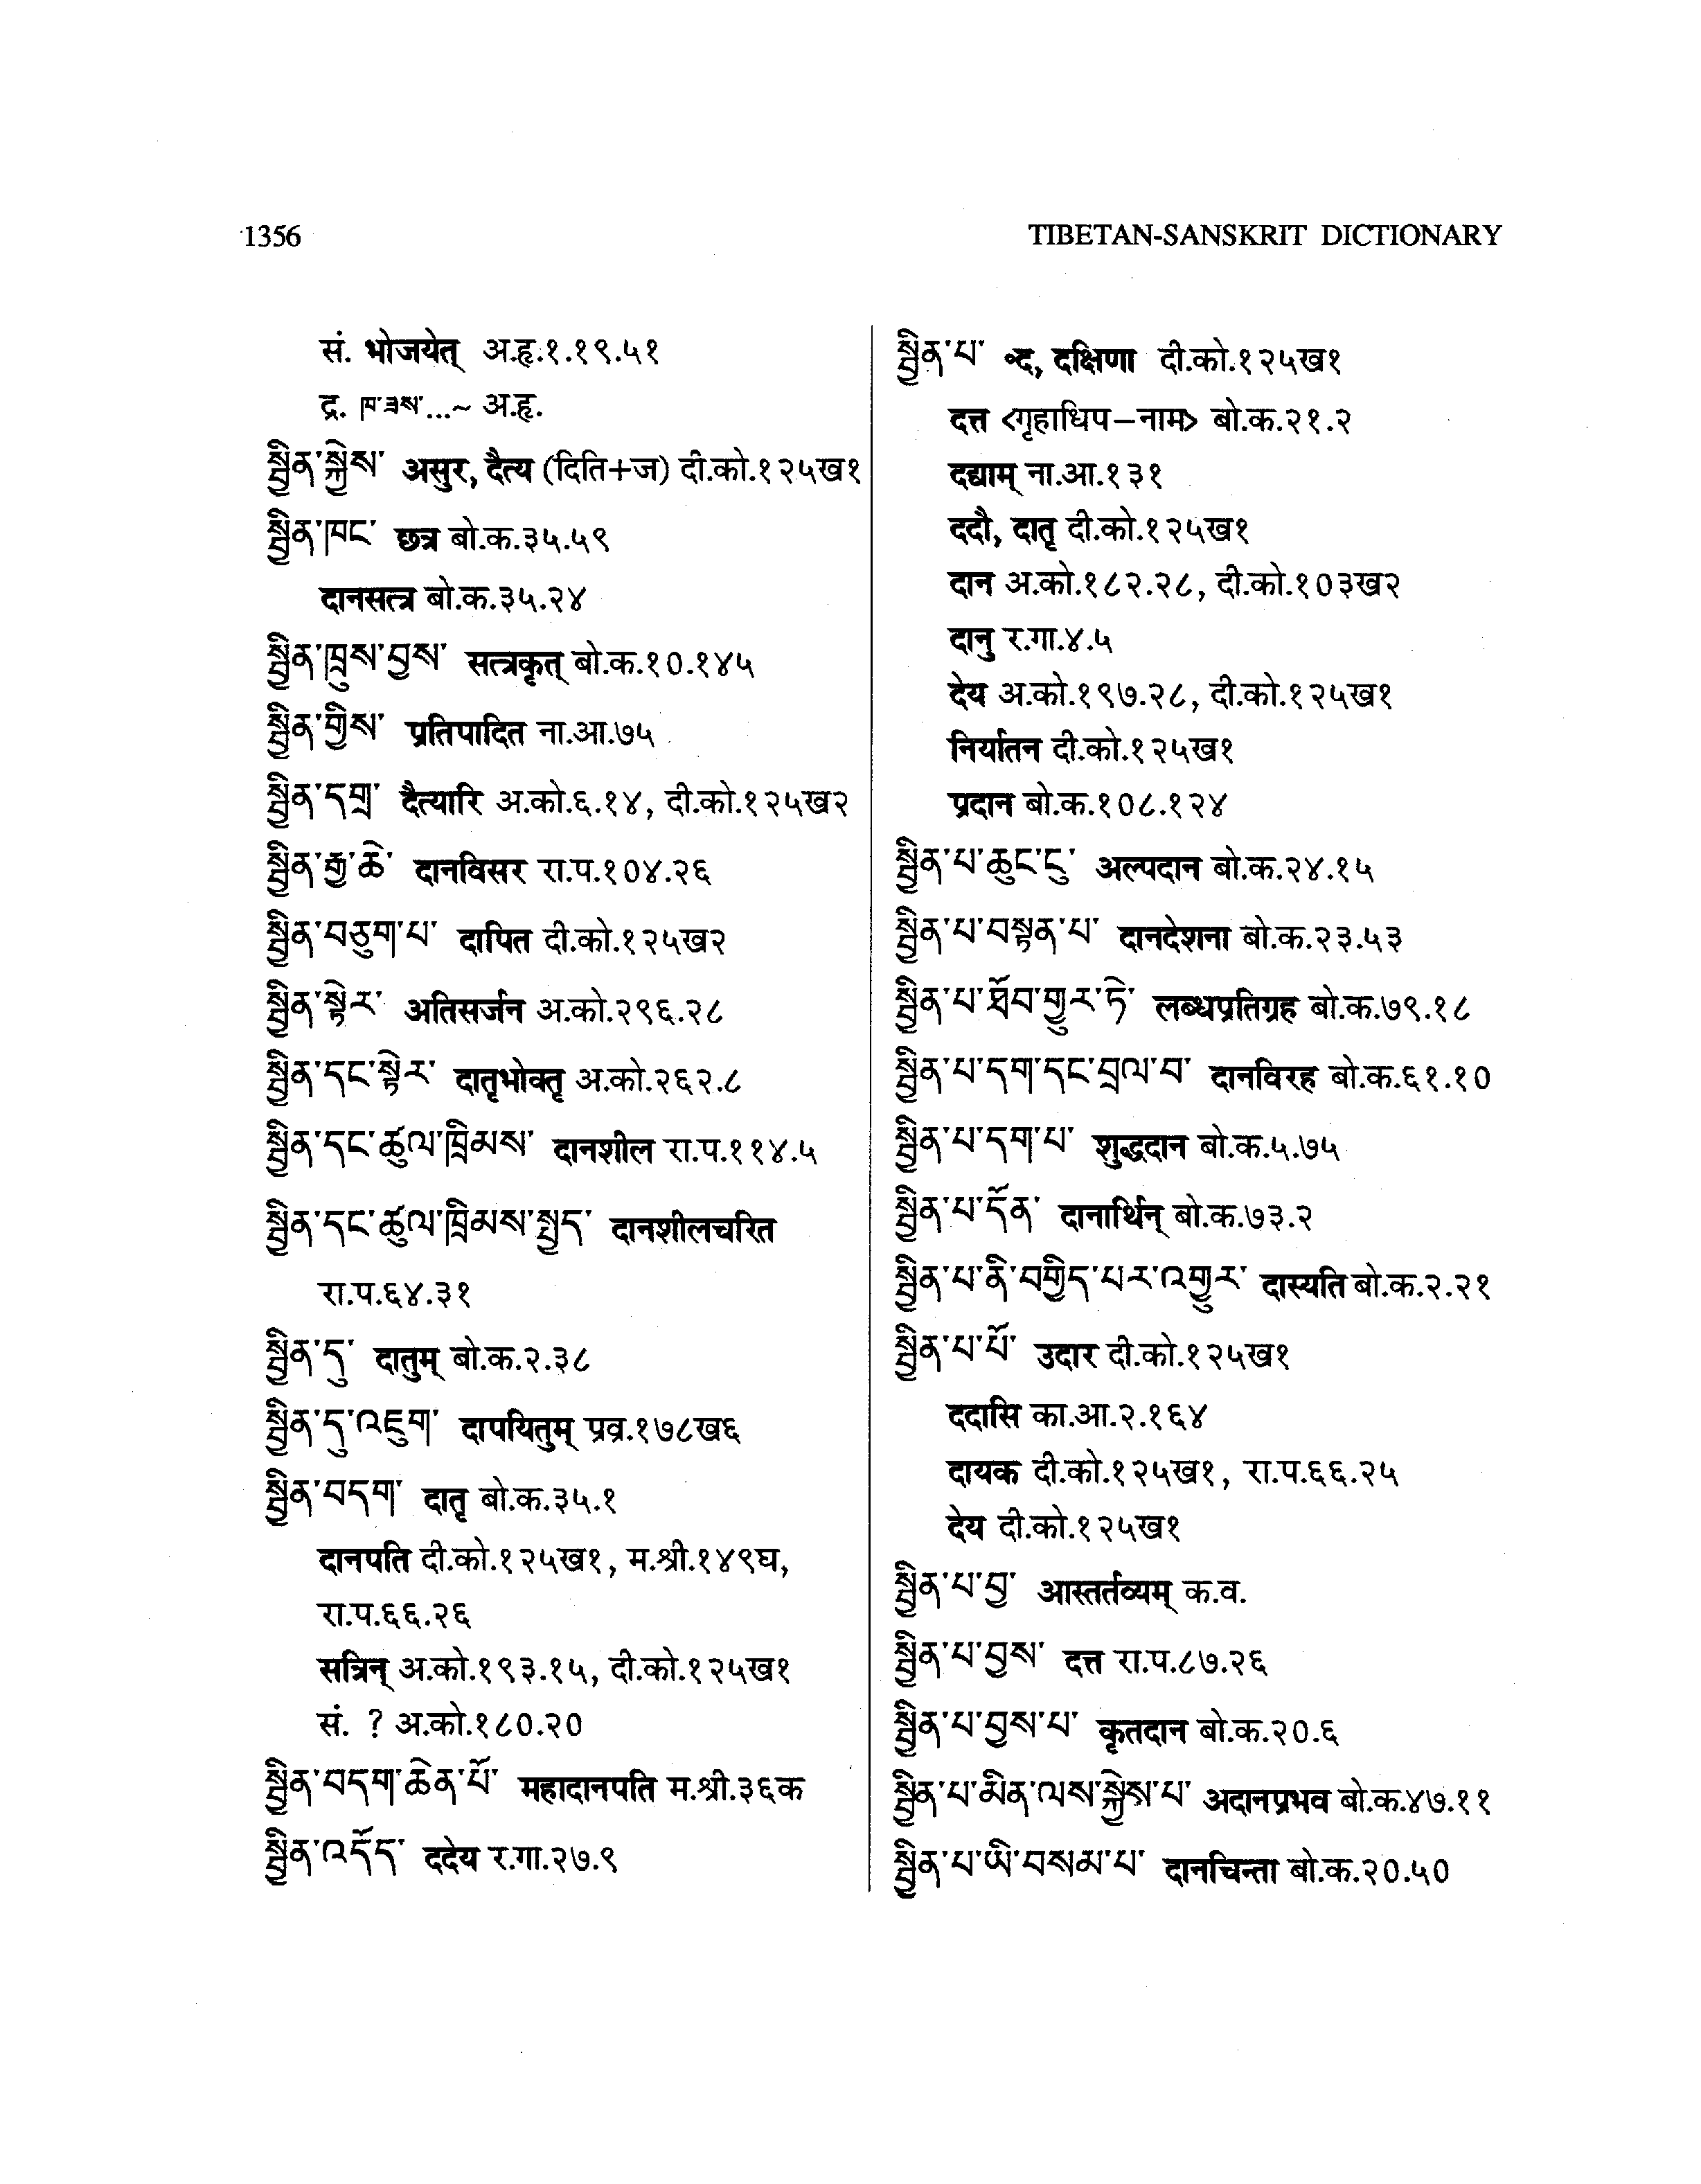 1356
TIBETAN-SANSKRIT DICTIONARY
सं. भोजयेत् अ.हृ.१.१९.५१
द्र. ཁ་ཟས་...~ अ.हृ.
སྦྱིན་སྐྱེས་ असुर, दैत्य (दिति+ज) दी.को.१२५ख१
སྦྱིན་ཁང་ छत्र बो.क.३५.५९
दानसत्त्र बो.क.३५.२४
སྦྱིན་ཁྲུས་བྱས་ सत्त्रकृत् बो.क.१०.१४५
སྦྱིན་གྱིས་ प्रतिपादित ना.आ.७५
སྦྱིན་དགྲ་ दैत्यारि अ.को.६.१४, दी.को.१२५ख२
སྦྱིན་རྒྱ་ཆེ་ दानविसर रा.प.१०४.२६
སྦྱིན་བཅུག་པ་ दापित दी.को.१२५ख२
སྦྱིན་སྟེར་ अतिसर्जन अ.को.२९६.२८
སྦྱིན་དང་སྟེར་ दातृभोक्तृ अ.को.२६२.८
སྦྱིན་དང་ཚུལ་ཁྲིམས་ दानशील रा.प.११४.५
སྦྱིན་དང་ཚུལ་ཁྲིམས་སྤྱད་ दानशीलचरित
रा.प.६४.३१
སྦྱིན་དུ་ दातुम् बो.क.२.३८
སྦྱིན་དུ་འཇུག་ दापयितुम् प्रव्र.१७८ख६
སྦྱིན་བདག་ दातृ बो.क.३५.१
दानपति दी.को.१२५ख१, म.श्री.१४९घ,
रा.प.६६.२६
सत्रिन् अ.को.१९३.१५, दी.को.१२५ख१
सं. ? अ.को.१८०.२०
སྦྱིན་བདག་ཆེན་པོ་ महादानपति म.श्री.३६क
སྦྱིན་འདོད་ ददेय र.गा.२७.९
སྦྱིན་པ་ ॰द, दक्षिणा दी.को.१२५ख१
दत्त <गृहाधिप–नाम> बो.क.२१.२
दद्याम् ना.आ.१३१
ददौ, दातृ दी.को.१२५ख१
दान अ.को.१८२.२८, दी.को.१०३ख२
दानु र.गा.४.५
देय अ.को.१९७.२८, दी.को.१२५ख१
निर्यातन दी.को.१२५ख१
प्रदान बो.क.१०८.१२४
སྦྱིན་པ་ཆུང་ངུ་ अल्पदान बो.क.२४.१५
སྦྱིན་པ་བསྟན་པ་ दानदेशना बो.क.२३.५३
སྦྱིན་པ་ཐོབ་གྱུར་ཏེ་ लब्धप्रतिग्रह बो.क.७९.१८
སྦྱིན་པ་དག་དང་བྲལ་བ་ दानविरह बो.क.६१.१०
སྦྱིན་པ་དག་པ་ शुद्धदान बो.क.५.७५
སྦྱིན་པ་དོན་ दानार्थिन् बो.क.७३.२
སྦྱིན་པ་ནི་བགྱིད་པར་འགྱུར་ दास्यति बो.क.२.२१
སྦྱིན་པ་པོ་ उदार दी.को.१२५ख१
ददासि का.आ.२.१६४
दायक दी.को.१२५ख१, रा.प.६६.२५
देय दी.को.१२५ख१
སྦྱིན་པ་བྱ་ आस्तर्तव्यम् क.व.
སྦྱིན་པ་བྱས་ दत्त रा.प.८७.२६
སྦྱིན་པ་བྱས་པ་ कृतदान बो.क.२०.६
སྦྱིན་པ་མིན་ལས་སྐྱེས་པ་ अदानप्रभव बो.क.४७.११
སྦྱིན་པ་ཡི་བསམ་པ་ दानचिन्ता बो.क.२०.५०